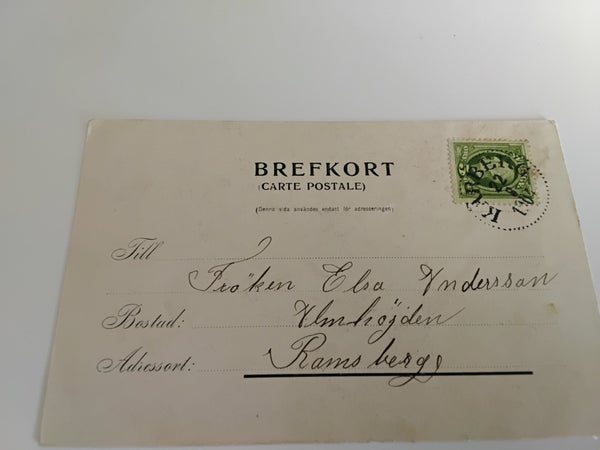 BREFKORT
(CARTE POSTALE)
(Denna sida användes endast för adresseringen)
Till
Fröken Elsa Andersson
Bostad: Almhöjden
Adressort: Ramsberg